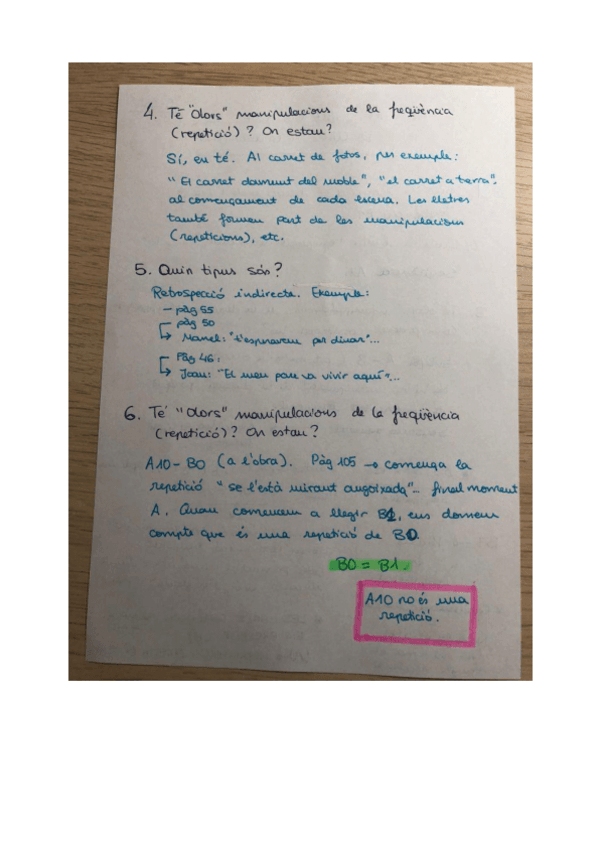 4. Té "Olors" manipulacions de la freqüència
(repetició)? On estau?
Sí, eu té. Al carret de fotos, per exemple:
"El carret damunt del moble", "el carret a terra".
al començament de cada escena. Les lletres
també formen part de les manipulacions
(repeticions), etc.
5. Quin tipus són?
Retrospecció indirecta. Exemple:
- pàg 55
pàg 50
↳ Manel: "t'esperàvem per dinar"...
Pàg 46:
↳ Joan: "El meu pare va vivir aquí"...
6. Té "Olors" manipulacions de la freqüència
(repetició)? On estau?
A10-B0 (a l'obra). Pàg 105 → comença la
repetició "se l'està mirant angoixada"... final moment
A. Quan comencem a llegir B1, ens donem
compte que és una repetició de B0
B0 = B1.
A10 no és una
repetició.